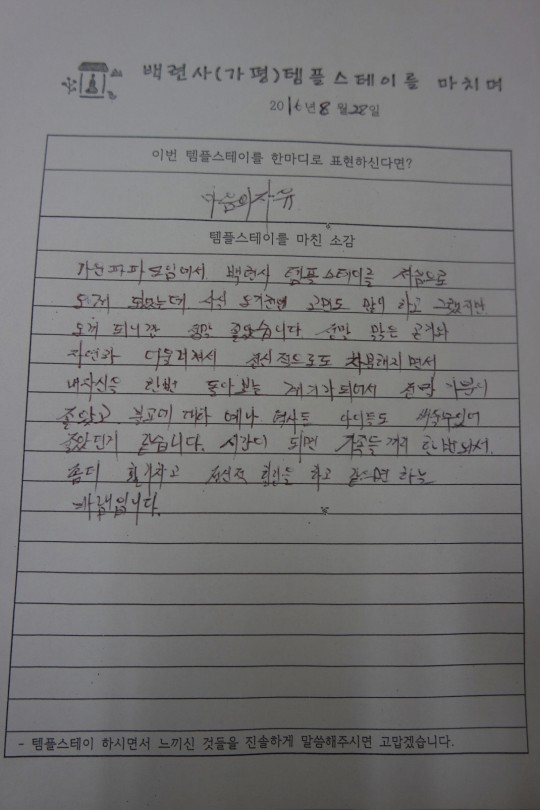 백련사(가평)템플스테이를 마치며
2016년 8월 28일
이번 템플스테이를 한마디로 표현하신다면?
마음의자유
템플스테이를 마친 소감
모임에서 백련사 템플스테이를 처음으로
오게 되었는데 사실 오기전엔 고민도 많이 하고 그랬지만
오게 되니깐 정말 좋았습니다. 정말 맑은 공기와
자연과 어울려져서 정신적으로도 차분해지면서
내자신을 한번 돌아보는 계기가되어서 정말 기분이
좋았고 불교에 대한 예나 역사등 아이들도 배울수있어
좋았던거 같습니다. 시간이 되면 가족들끼리 한번와서
좀더 힐링하고 정신적 힐링을 하고 갔으면 하는
바램입니다.
- 템플스테이 하시면서 느끼신 것들을 진솔하게 말씀해주시면 고맙겠습니다.